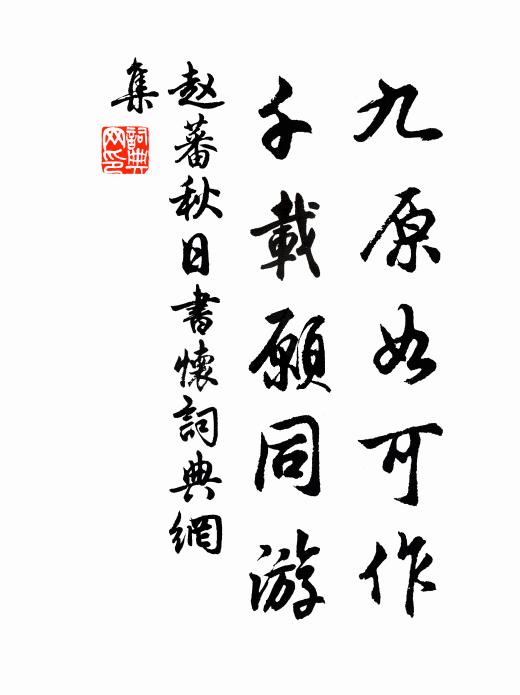 九原如可作
千載願同游
赵蕃秋日書懷詞典網
集
詞典
网印